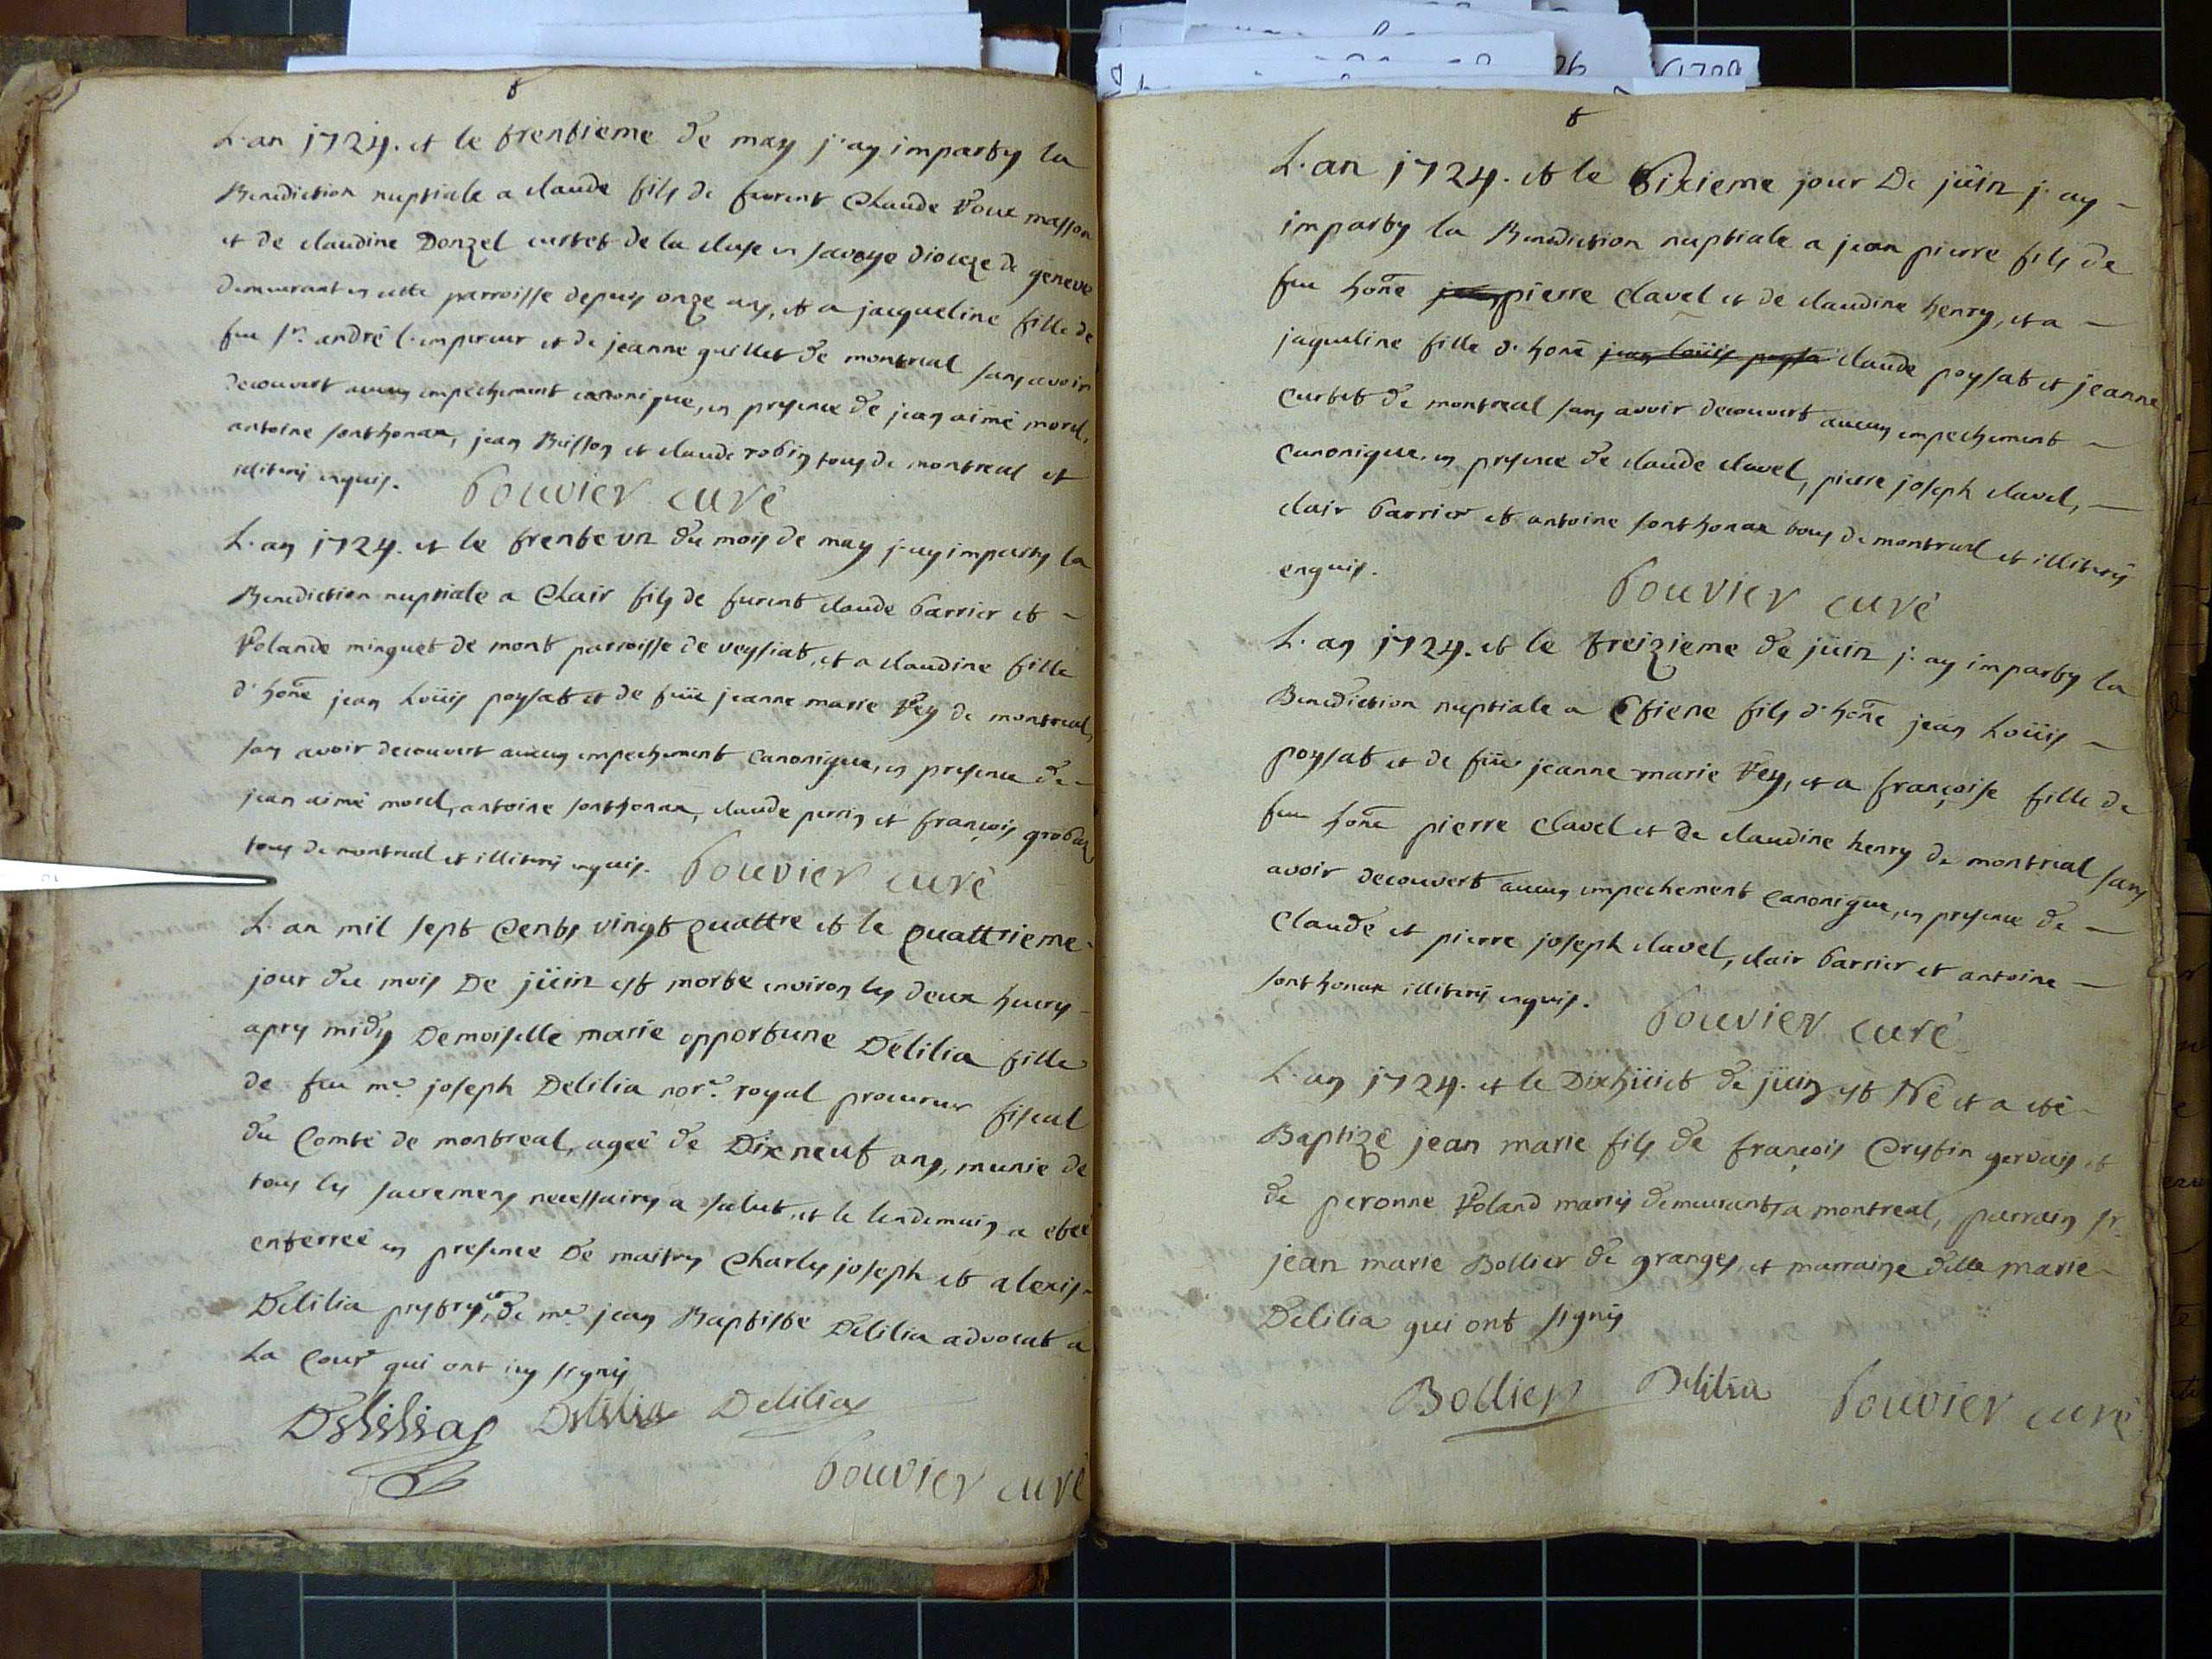 L'an 1724. et le trentieme de may j'ay imparty la
Benediction nuptiale a claude fils de furent Claude Roux masson
et de claudine Donzel curtet de la cluse en savoye dioceze de geneve
demeurant en cette parroisse depuis onze ans, et a jacqueline fille de
feu sr. andré l'empereur et de jeanne guillet de montreal sans avoir
decouvert aucun empechement canonique, en presence de jean aimé morel,
antoine sonthonax, jean Buisson et claude robin tous de montreal et
illiterés enquis. Bouvier curé
L'an 1724. et le trente un du mois de may j'ay imparty la
Benediction nuptiale a Clair fils de furent claude barrier et
Rolande minguet de mont parroisse de veysiat, et a claudine fille
d'hone jean Loüis poysat et de füe jeanne marie Rey de montreal,
sans avoir decouvert aucun empechement canonique, en presence de
jean aimé morel, antoine sonthonax, claude perrin et françois grobas
tous de montreal et illiterés enquis. Bouvier curé
L'an mil sept Cents vingt quattre et le quattrieme
jour du mois De jüin est morte environ les deux heures
apres midy Demoiselle marie opportune Delilia fille
de feu me joseph Delilia nore. royal procureur fiscal
du Comté de montreal, ageé de Dixneuf ans, munie de
tous les sacremens necessaires a salut, et le lendemain a eteé
enterreé en presence De maitres Charles joseph et alexis
Delilia prestres, et de me jean Baptiste Delilia advocat a
La Cour qui ont icy signés
Delilia Delilia Delilia
Bouvier curé
L'an 1724. et le Sixieme jour De jüin j'ay
imparty la Benediction nuptiale a jean pierre fils de
feu hone pierre Clavel et de claudine henry, et a
jaqueline fille d'hone jean loüis poysa claude poysat et jeanne
Curtet de montreal sans avoir decouvert aucun empechement
Canonique, en presence de claude clavel, pierre joseph clavel,
clair barrier et antoine sonthonax tous de montreal et illiterés
enquis. Bouvier curé
L'an 1724. et le treizieme de jüin j'ay imparty la
Benediction nuptiale a Etiene fils d'hone jean Loüis
poysat et de füe jeanne marie Rey, et a françoise fille de
feu hone pierre Clavel et de claudine henry de montreal sans
avoir decouvert aucun empechement Canonique, en presence de
Claude et pierre joseph clavel, clair barrier et antoine
sonthonax illiterés enquis. Bouvier curé
L'an 1724. et le Dixhüict de jüin est Né et a eté
Baptizé jean marie fils de françois Crestin gervais et
de peronne Roland mariés demeurants a montreal, parrain sr.
jean marie Bollier de granges, et marraine delle marie
Delilia qui ont signés
Bollier Delilia Bouvier curé